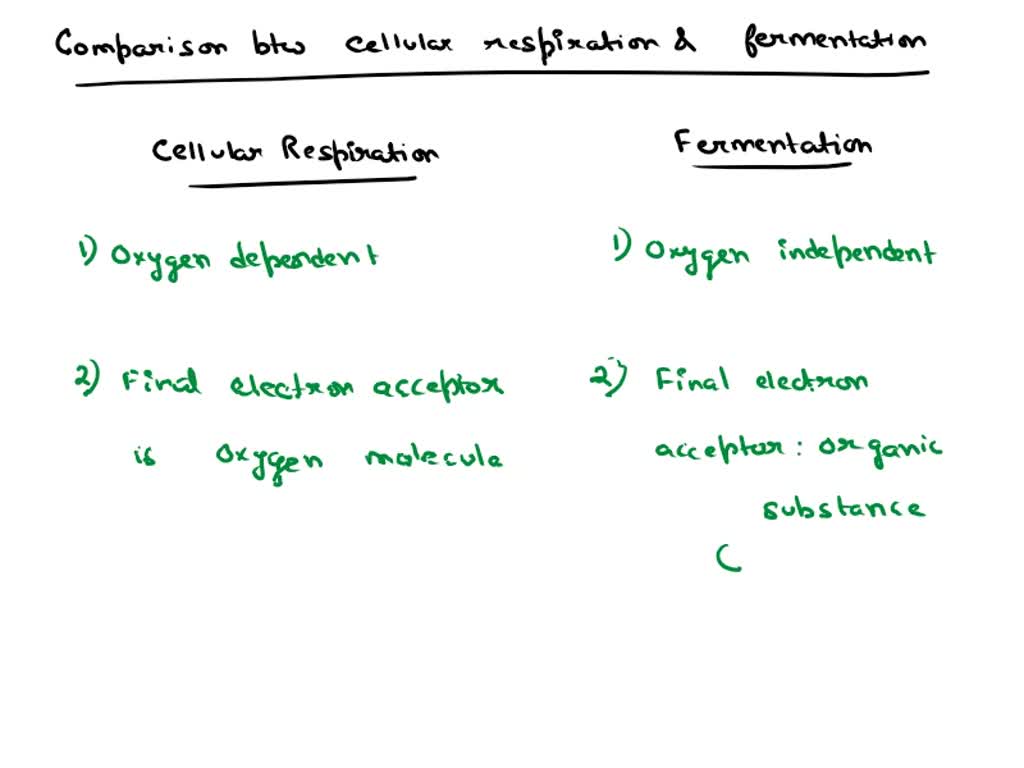 Comparison btw cellular respiration & fermentation
Cellular Respiration
Fermentation
1) Oxygen dependent
1) Oxygen independent
2) Final electron acceptor
is oxygen molecule
2) Final electron
acceptor: organic
substance
(